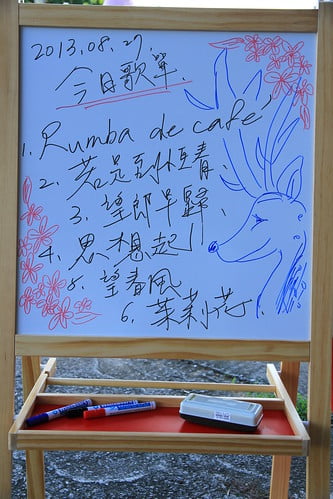 2013.08.27
今日歌單
1. Rumba de café
2. 若是到恆春
3. 望郎早歸
4. 思想起
5. 望春風
6. 茉莉花